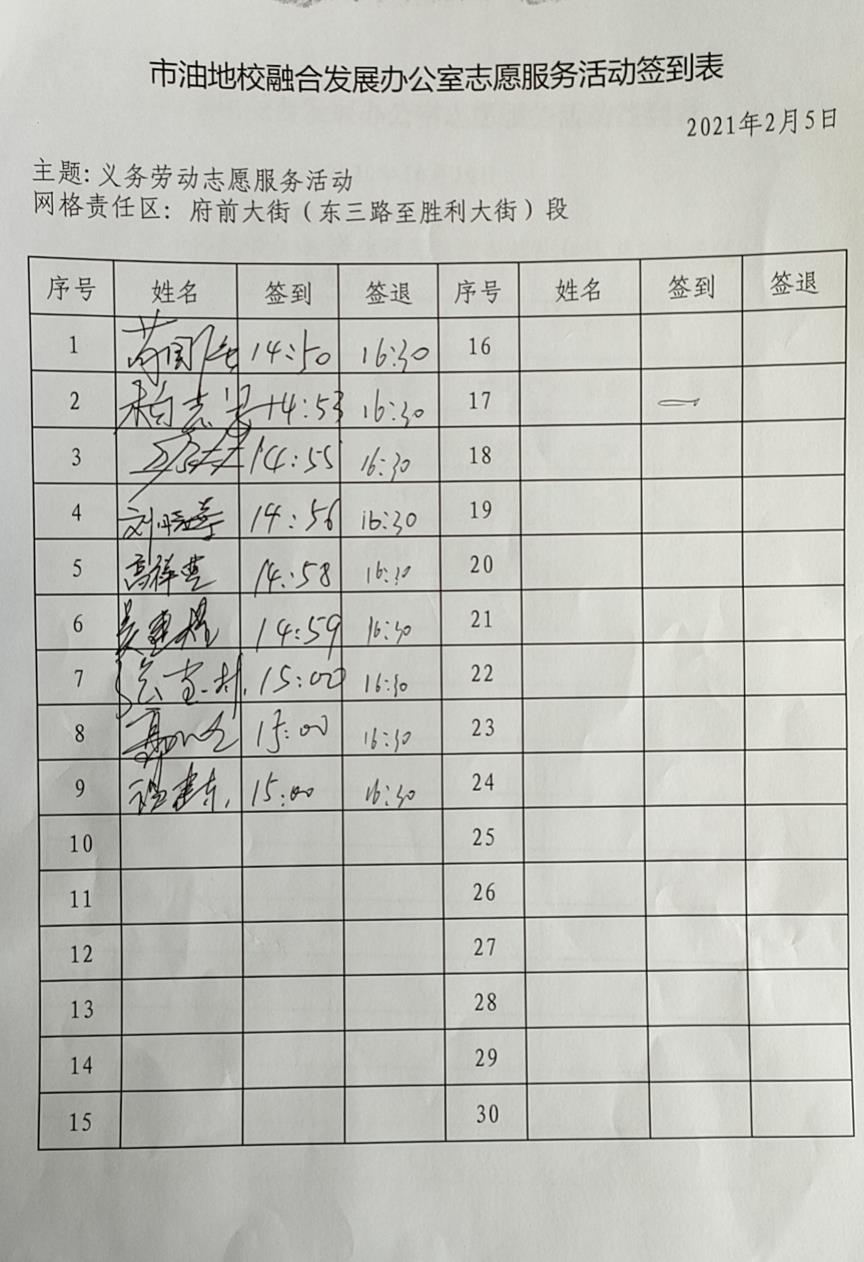 市油地校融合发展办公室志愿服务活动签到表
2021年2月5日
主题：义务劳动志愿服务活动
网格责任区：府前大街（东三路至胜利大街）段
序号 姓名 签到 签退 序号 姓名 签到 签退
1 14:50 16:30 16
2 14:53 16:30 17
3 14:55 16:30 18
4 14:56 16:30 19
5 14:58 16:30 20
6 14:59 16:30 21
7 15:00 16:30 22
8 15:00 16:30 23
9 15:00 16:30 24
10 25
11 26
12 27
13 28
14 29
15 30